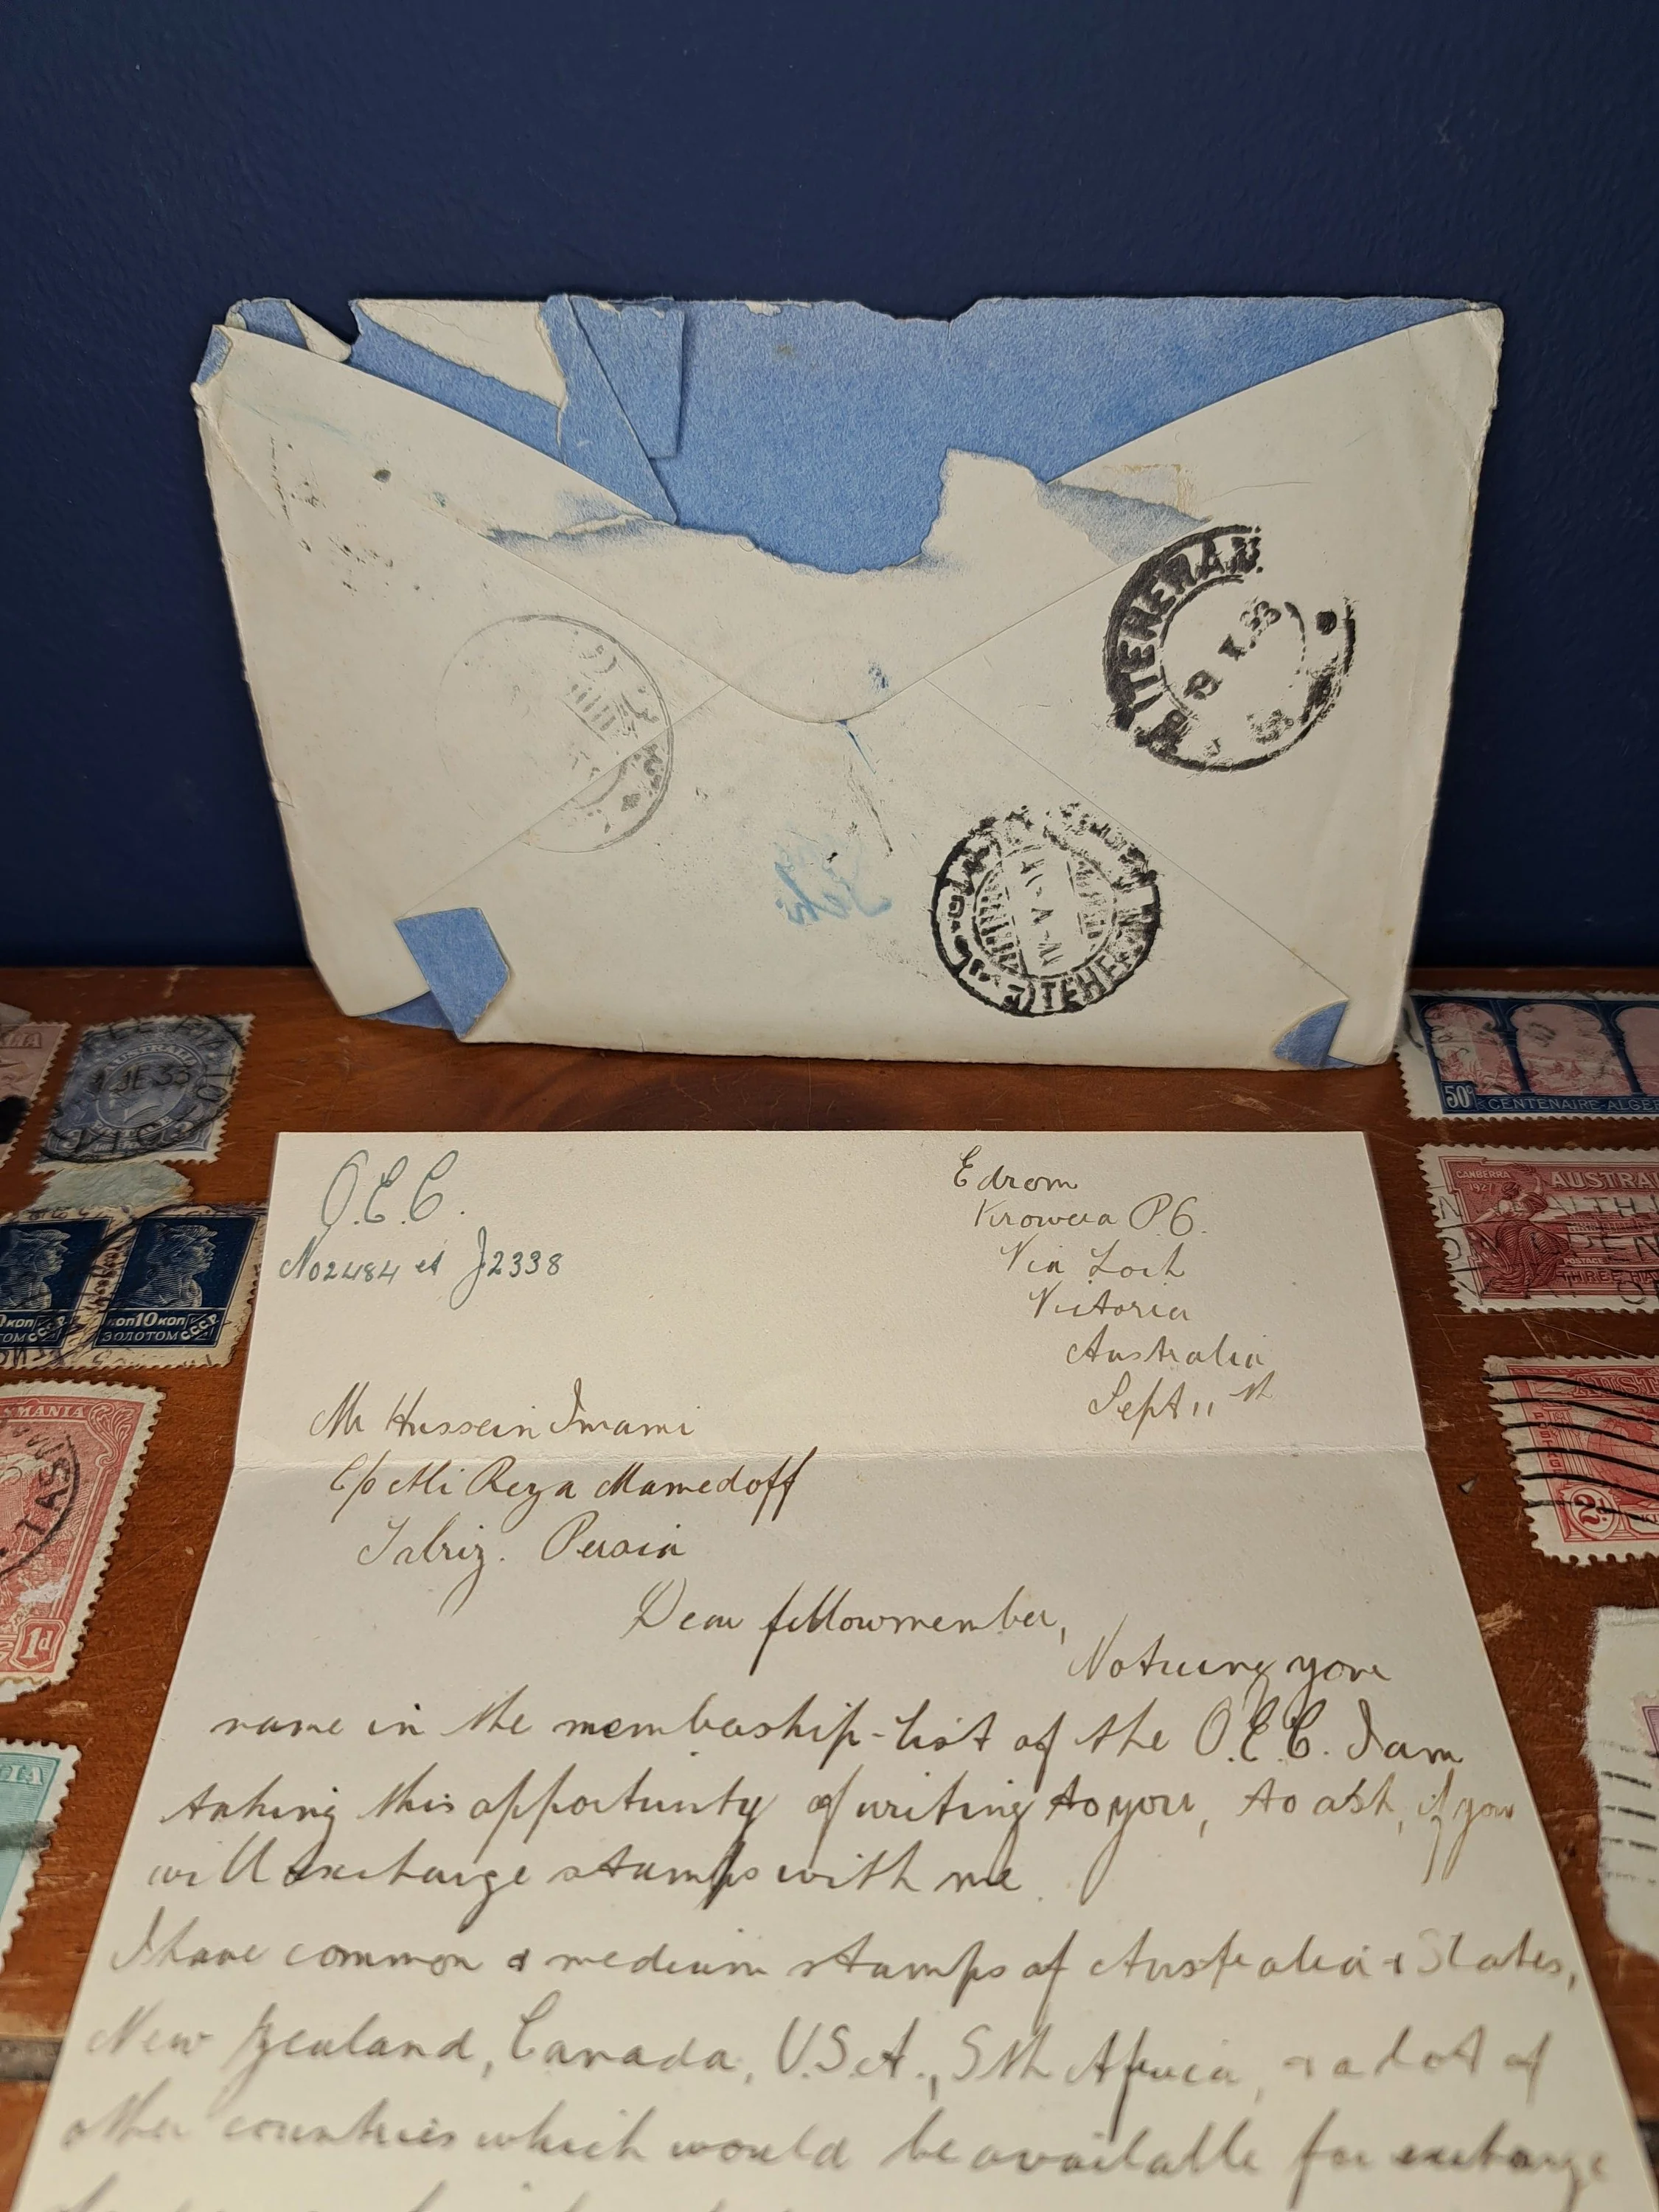 TEHERAN.
TEHERAN
O.E.C.
No 2484 et J2338
Edrom
Krowera P.O.
Via Loch
Victoria
Australia
Sept 11th
Mr Hussein Imami
C/o Ali Reza Mamedoff
Tabriz. Persia
Dear fellowmember,
Noticing your
name in the membership-list of the O.E.C. I am
taking this opportunity of writing to you, to ask, if you
will exchange stamps with me.
I have common & medium stamps of Australia & States,
New Zealand, Canada, U.S.A., Sth Africa, & a lot of
other countries which would be available for exchange
AUSTRALIA
1 JE 33
10 КОП
ЗОЛОТОМ
СССР
TAS
1d
50c
CENTENAIRE-ALGÉ
CANBERRA
1927
AUSTRA
POSTAGE
THREE HA
2d